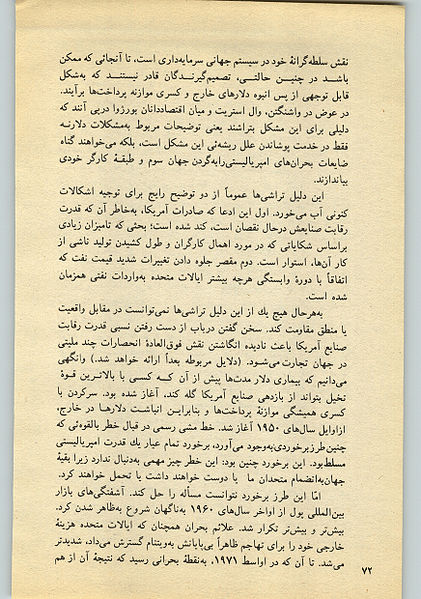 نقش سلطه‌گرانهٔ خود در سیستم جهانی سرمایه‌داری است، تا آنجائی که ممکن
باشد در چنین حالتی، تصمیم‌گیرندگان قادر نیستند که به‌شکل
قابل توجهی از پس انبوه دلارهای خارج و کسری موازنه پرداخت‌ها برآیند.
در عوض در واشنگتن، وال استریت و میان اقتصاددانان بورژوا درپی آنند که
دلیلی برای این مشکل بتراشند یعنی توضیحات مربوط به‌مشکلات دلارنه
فقط در خدمت پوشاندن علل ریشه‌ئی این مشکل است، بلکه می‌خواهند گناه
ضایعات بحران‌های امپریالیستی‌رابه‌گردن جهان سوم و طبقهٔ کارگر خودی
بیاندازند.
این دلیل تراشی‌ها عموماً از دو توضیح رایج برای توجیه اشکالات
کنونی آب می‌خورد. اول این ادعا که صادرات آمریکا، به‌خاطر آن که قدرت
رقابت صنایعش درحال نقصان است، کند شده است؛ بحثی که تامیزان زیادی
براساس شکایاتی که در مورد اهمال کارگران و طول کشیدن تولید ناشی از
کار آن‌ها، استوار است. دوم مقصر جلوه دادن تغییرات شدید قیمت نفت که
اتفاقاً با دورهٔ وابستگی هرچه بیشتر ایالات متحده به‌واردات نفتی همزمان
شده است.
به‌هرحال هیچ یك از این دلیل تراشی‌ها نمی‌توانست در مقابل واقعیت
یا منطق مقاومت کند. سخن گفتن درباب از دست رفتن نسبی قدرت رقابت
صنایع آمریکا باعث نادیده انگاشتن نقش فوق‌العادهٔ انحصارات چند ملیتی
در جهان تجارت می‌شود. (دلایل مربوطه بعداً ارائه خواهد شد.) وانگهی
می‌دانیم که بیماری دلار مدت‌ها پیش از آن کــه کسی با بالاترین قوهٔ
تخیل بتواند از بازدهی صنایع آمریکا گله کند، آغاز شده بود. سرکردن با
کسری همیشگی موازنهٔ پرداخت‌ها و بنابراین انباشت دلارها در خارج،
ازاوایل سال‌های ۱۹۵۰ آغاز شد. خط مشی رسمی در قبال خطر بالقوه‌ئی که
چنین‌طرزبرخوردی‌به‌وجود می‌آورد، برخورد تمام عیار یك قدرت امپریالیستی
مسلط‌بود. این برخورد چنین بود: این خطر چیز مهمی به‌دنبال ندارد زیرا بقیهٔ
جهان‌به‌انضمام متحدان ما یا دوست خواهند داشت یا تحمل خواهند کرد.
امّا این طرز برخورد نتوانست مسأله را حل کند. آشفتگی‌های بازار
بین‌المللی پول از اواخر سال‌های ۱۹۶۰ به‌ناگهان شروع به‌ظاهر شدن کرد.
بیش‌تر و بیش‌تر تکرار شد. علائم بحران همچنان که ایالات متحده هزینهٔ
خارجی خود را برای تهاجم ظاهراً بی‌پایانش به‌ویتنام گسترش می‌داد، شدیدتر
می‌شد. تا آن که در اواسط ۱۹۷۱، به‌نقطهٔ بحرانی رسید که نتیجهٔ آن از هم
۷۲